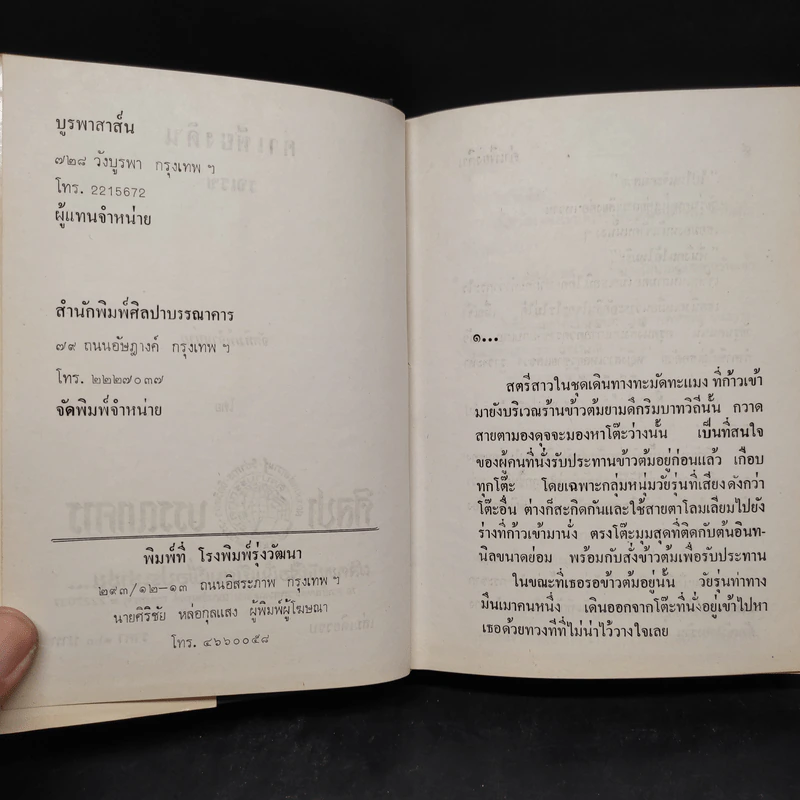 บูรพาสาส์น
๗๒๘ วังบูรพา กรุงเทพ ฯ
โทร. 2215672
ผู้แทนจำหน่าย
สำนักพิมพ์ศิลปาบรรณาคาร
๗๙ ถนนอัษฎางค์ กรุงเทพ ฯ
โทร. ๒๒๒๗๐๓๗
จัดพิมพ์จำหน่าย
พิมพ์ที่ โรงพิมพ์รุ่งวัฒนา
๒๙๓/๑๒-๑๓ ถนนอิสระภาพ กรุงเทพ ฯ
นายศิริชัย หล่อกุลแสง ผู้พิมพ์ผู้โฆษณา
โทร. ๔๖๖๐๐๕๘
๑...
สตรีสาวในชุดเดินทางทะมัดทะแมง ที่ก้าวเข้า
มายังบริเวณร้านข้าวต้มยามดึกริมบาทวิถีนั้น กวาด
สายตามองดุจจะมองหาโต๊ะว่างนั้น เป็นที่สนใจ
ของผู้คนที่นั่งรับประทานข้าวต้มอยู่ก่อนแล้ว เกือบ
ทุกโต๊ะ โดยเฉพาะกลุ่มหนุ่มวัยรุ่นที่เสียงดังกว่า
โต๊ะอื่น ต่างก็สะกิดกันและใช้สายตาโลมเลียมไปยัง
ร่างที่ก้าวเข้ามานั่ง ตรงโต๊ะมุมสุดที่ติดกับต้นอินท-
นิลขนาดย่อม พร้อมกับสั่งข้าวต้มเพื่อรับประทาน
ในขณะที่เธอรอข้าวต้มอยู่นั้น วัยรุ่นท่าทาง
มึนเมาคนหนึ่ง เดินออกจากโต๊ะที่นั่งอยู่เข้าไปหา
เธอด้วยทวงทีที่ไม่น่าไว้วางใจเลย